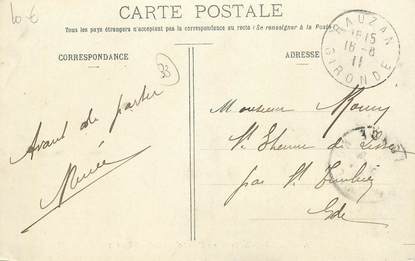 10 €
CARTE POSTALE
Tous les pays étrangers n'acceptent pas la correspondance au recto (Se renseigner à la Poste)
CORRESPONDANCE
33
ADRESSE
RAUZAN
18 15
18 -8
11
GIRONDE
Avant de partir
Monsieur
St Etienne de
par St
Gde